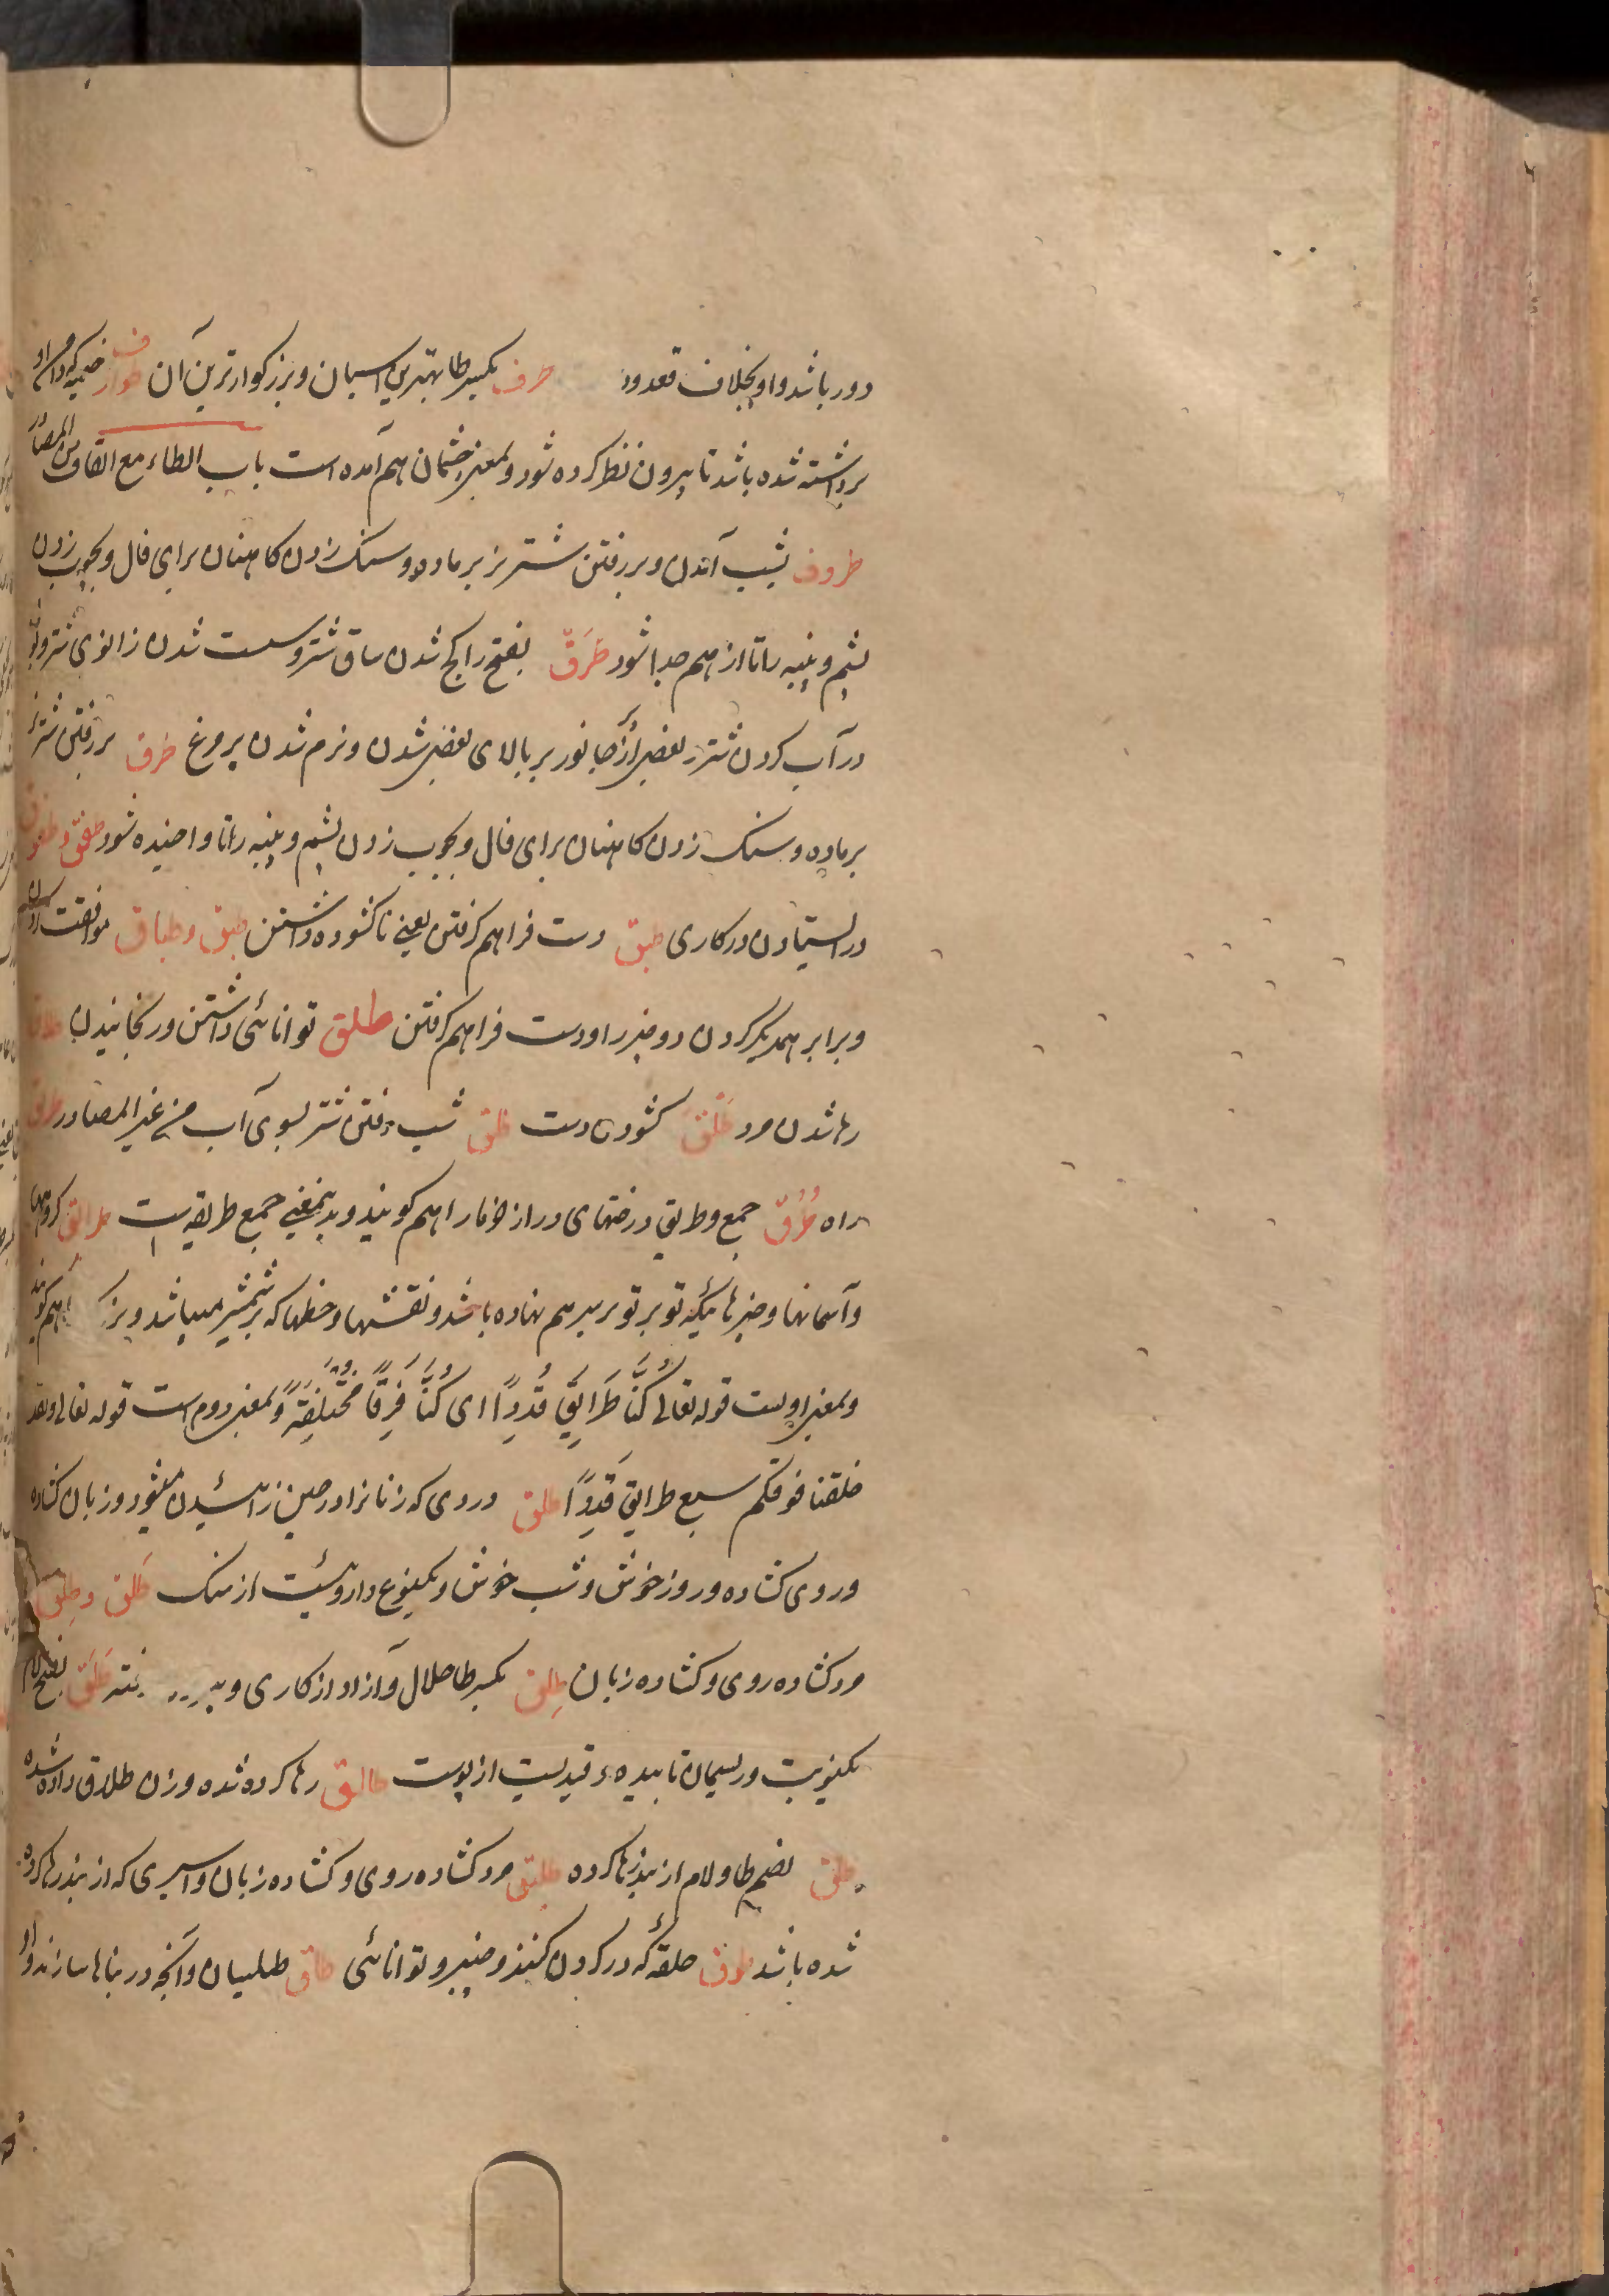 دور باشد و او بخلاف قعدود طرف بکسر طا بهترین اسپان و بزرکوارترین آن طوارف خیمه که دامن او
برداشته شده باشد تا بیرون نظر کرده شود و بمعنی چشمان هم آمده است باب الطاء مع القاف من المصادر
طروق بشب آمدن و بر رفتن شتر نر بر ماده و سنک زدن کاهنان برای فال و بچوب زدن
پشم و پنبه را تا از هم جدا شود طَرَق بفتح را کج شدن ساق شتر و سست شدن زانوی شتر و
در آب کردن شتر و بعضی از جانور بر بالای بعضی شدن و نرم شدن پر مرغ طرق بر رفتن شتر نر
بر ماده و سنک زدن کاهنان برای فال و بچوب زدن پشم و پنبه را تا واخیده شود طفق و طفوق
در ایستادن در کاری طبق دست فراهم کرفتن یعنی ناکشوده داشتن طبق و طباق موافقت کردن
و برابر همدیکر کردن دو چیز را و دست فراهم کرفتن طلق توانائی داشتن و رنجانیدن
رها شدن مرد طَلْق کشودن دست طلق شب رفتن شتر بسوی آب من غیر المصادر طریق
راه طُرُق جمع و طریق درختهای دراز خرما را هم کویند و بدینمعنی جمع طریقه است طرائق کروهها
و آسمانها و چیزهائیکه تو بر تو بر سر هم نهاده باشد و نقشها و خطها که بر شمشیر میباشد و هم کویند
و بمعنی اولست قوله تعالی کُنَّا طَرَائِقَ قِدَدًا ای کُنَّا فِرَقًا مُخْتَلِفَةً و بمعنی دوم است قوله تعالی و لقد
خلقنا فوقکم سبع طرایق قِدَدًا طلق دردی که زنانرا در حین زائیدن میشود و زبان کشاده
و روی کشاده و روز خوش و شب خوش و یکنوع داروئیست از سنک طَلق و طِلق
مرد کشاده روی و کشاده زبان طِلق بکسر طا حلال و آزاد از کاری و طَلَق بفتح لام
و ریسمان تابیده و قیدیست از پوست طالق رها کرده شده و زن طلاق داده شده
طلق بضم طا و لام از بند رها کرده طلیق مرد کشاده روی و کشاده زبان و اسیری که از بند رها کرده
شده باشد طوق حلقهٔ که در کردن کنند و چنبر و توانائی طاق طیلسان و آنچه در بناها سازند و از